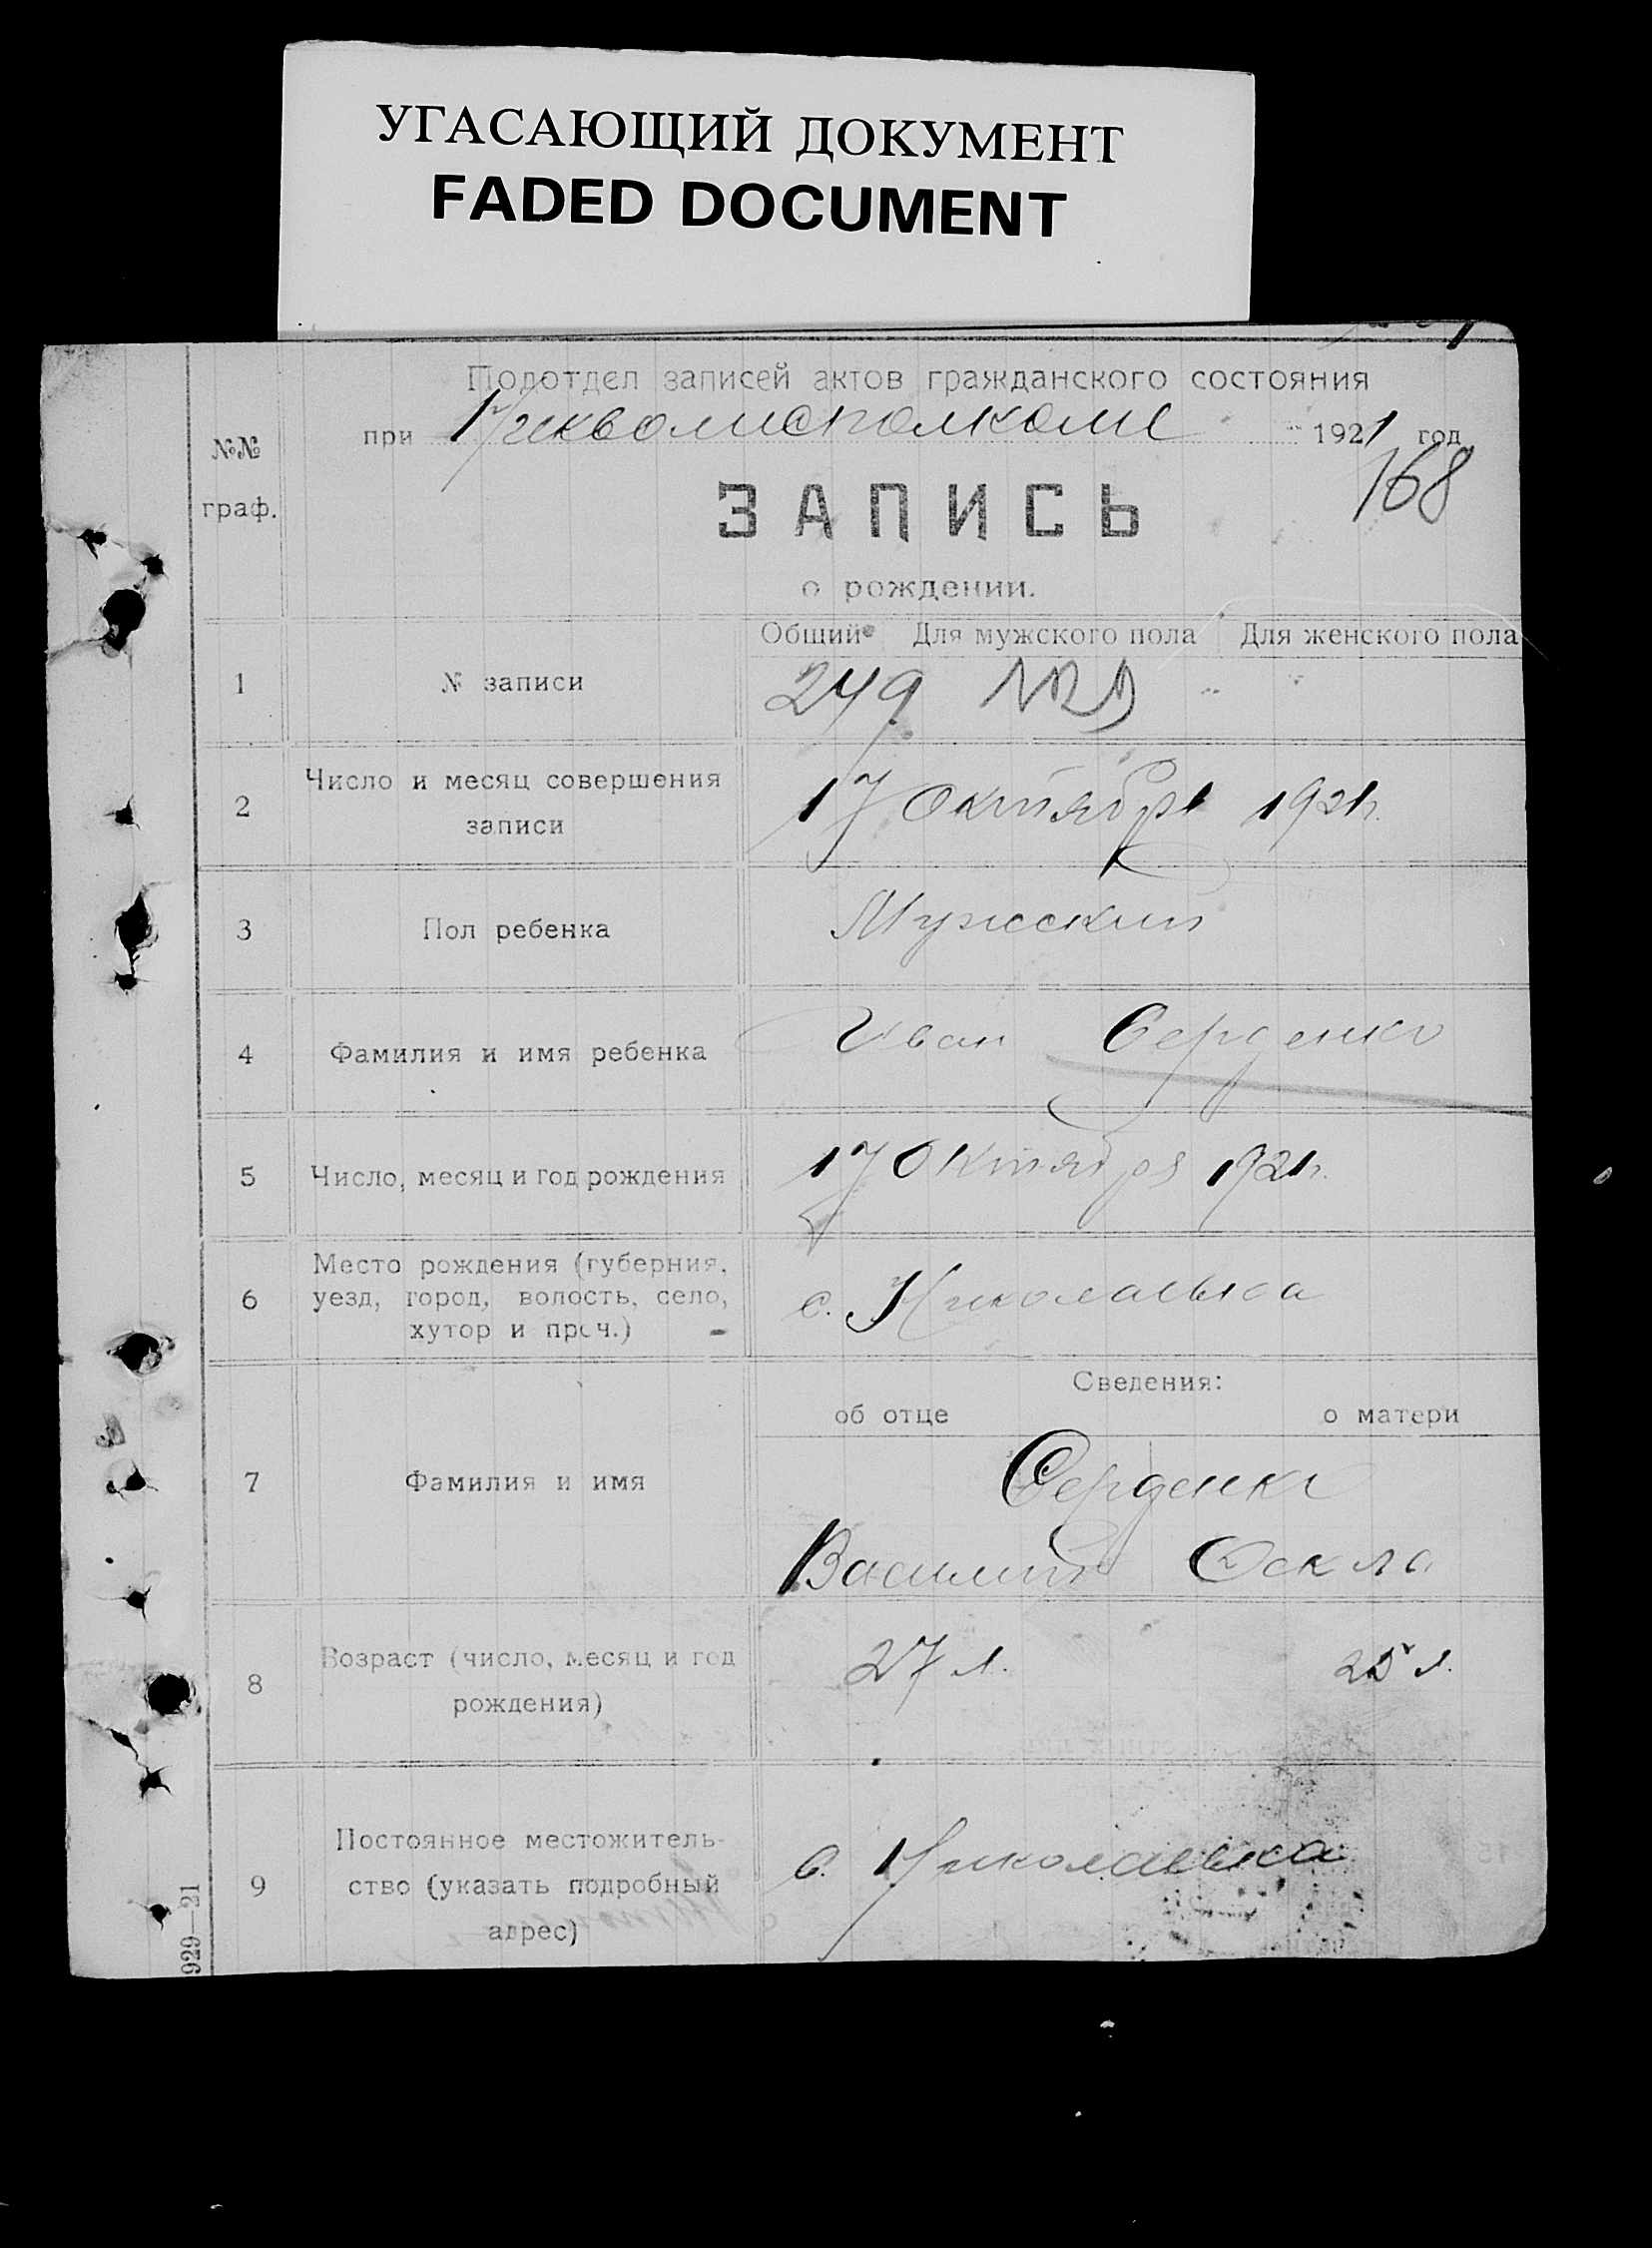 УГАСАЮЩИЙ ДОКУМЕНТ
FADED DOCUMENT
Подотдел записей актов гражданского состояния
при Никволисполкоме 1921 год
168
№№
граф.
ЗАПИСЬ
о рождении.
Общий Для мужского пола Для женского пола
1 № записи 249
2 Число и месяц совершения
записи
17 Октября 1921 г.
3 Пол ребенка Мужский
4 Фамилия и имя ребенка Иван Серденко
5 Число, месяц и год рождения 17 Октября 1921 г.
6 Место рождения (губерния,
уезд, город, волость, село,
хутор и проч.)
с. Николаевка
Сведения:
об отце о матери
7 Фамилия и имя
Серденко
Василий Фекла
8 Возраст (число, месяц и год
рождения)
27 л. 25 л.
9 Постоянное местожитель-
ство (указать подробный
адрес)
с. Николаевка
929—21